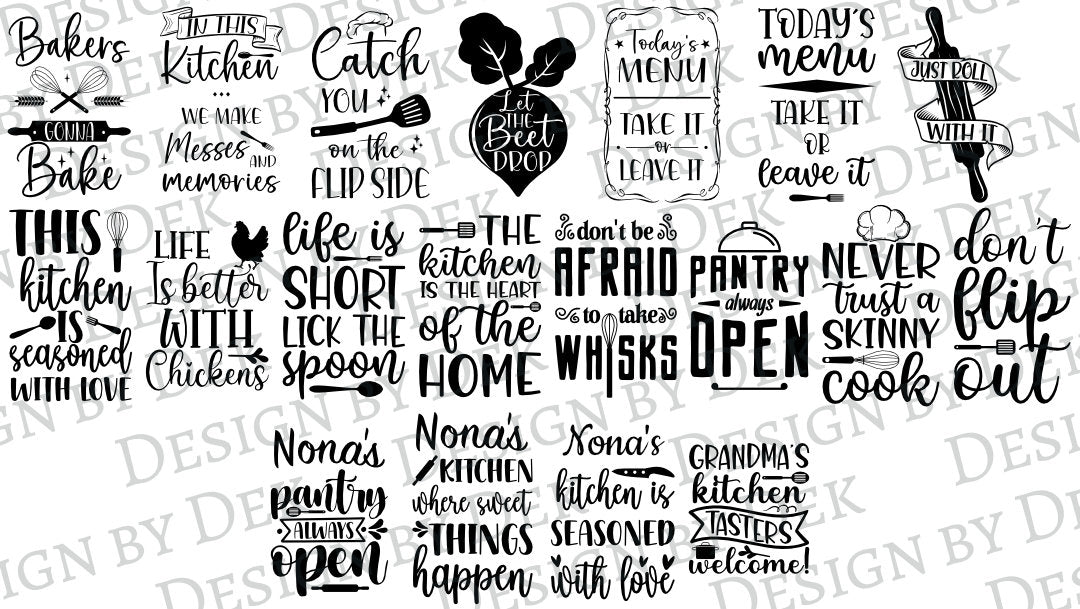 Bakers
GONNA
Bake
IN THIS
Kitchen
WE MAKE
Messes AND
memories
Catch
YOU
on the
FLIP SIDE
Let
THE
Beet
DROP
Today's
MENU
TAKE IT
or
LEAVE IT
TODAY'S
menu
TAKE IT
OR
leave it
JUST ROLL
WITH IT
THIS
kitchen
IS
seasoned
WITH LOVE
LIFE
Is better
WITH
Chickens
life is
SHORT
LICK THE
spoon
THE
kitchen
IS THE HEART
of the
HOME
don't be
AFRAID
to take
WHISKS
PANTRY
always
OPEN
NEVER
trust a
SKINNY
cook
don't
flip
out
Nona's
pantry
ALWAYS
open
Nona's
KITCHEN
where sweet
THINGS
happen
Nona's
kitchen is
SEASONED
with love
GRANDMA'S
kitchen
TASTERS
welcome!
DESIGN BY DEK